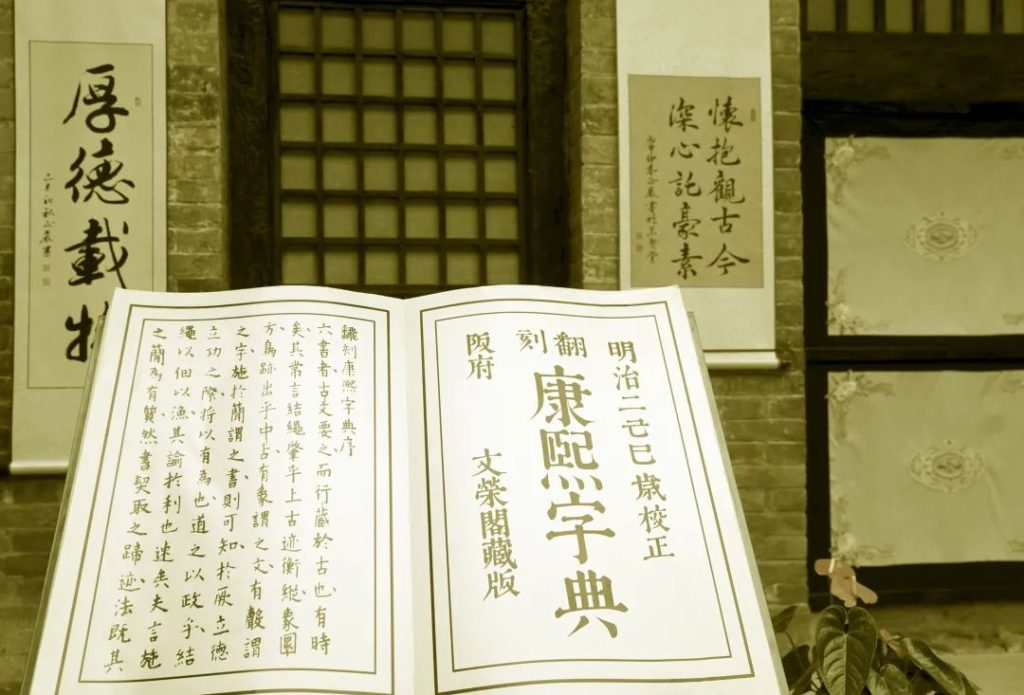 懷抱觀古今
深心託豪素
厚德載物
明治二己巳歲校正
翻刻
康熙字典
阪府 文榮閣藏版
刻康熙字典序
六書者古文要之而行藏於古也有時
矣其常言結繩肇乎上古迹衡縱象圜
方鳥跡出乎中占有象謂之文有聲謂
之字施於簡謂之書則可知於厥立德
立功之際将以有為也道之以政乎結
繩以佃以漁其論於利也速矣夫言施
之簡為有質然書契取之蹄迹法既其